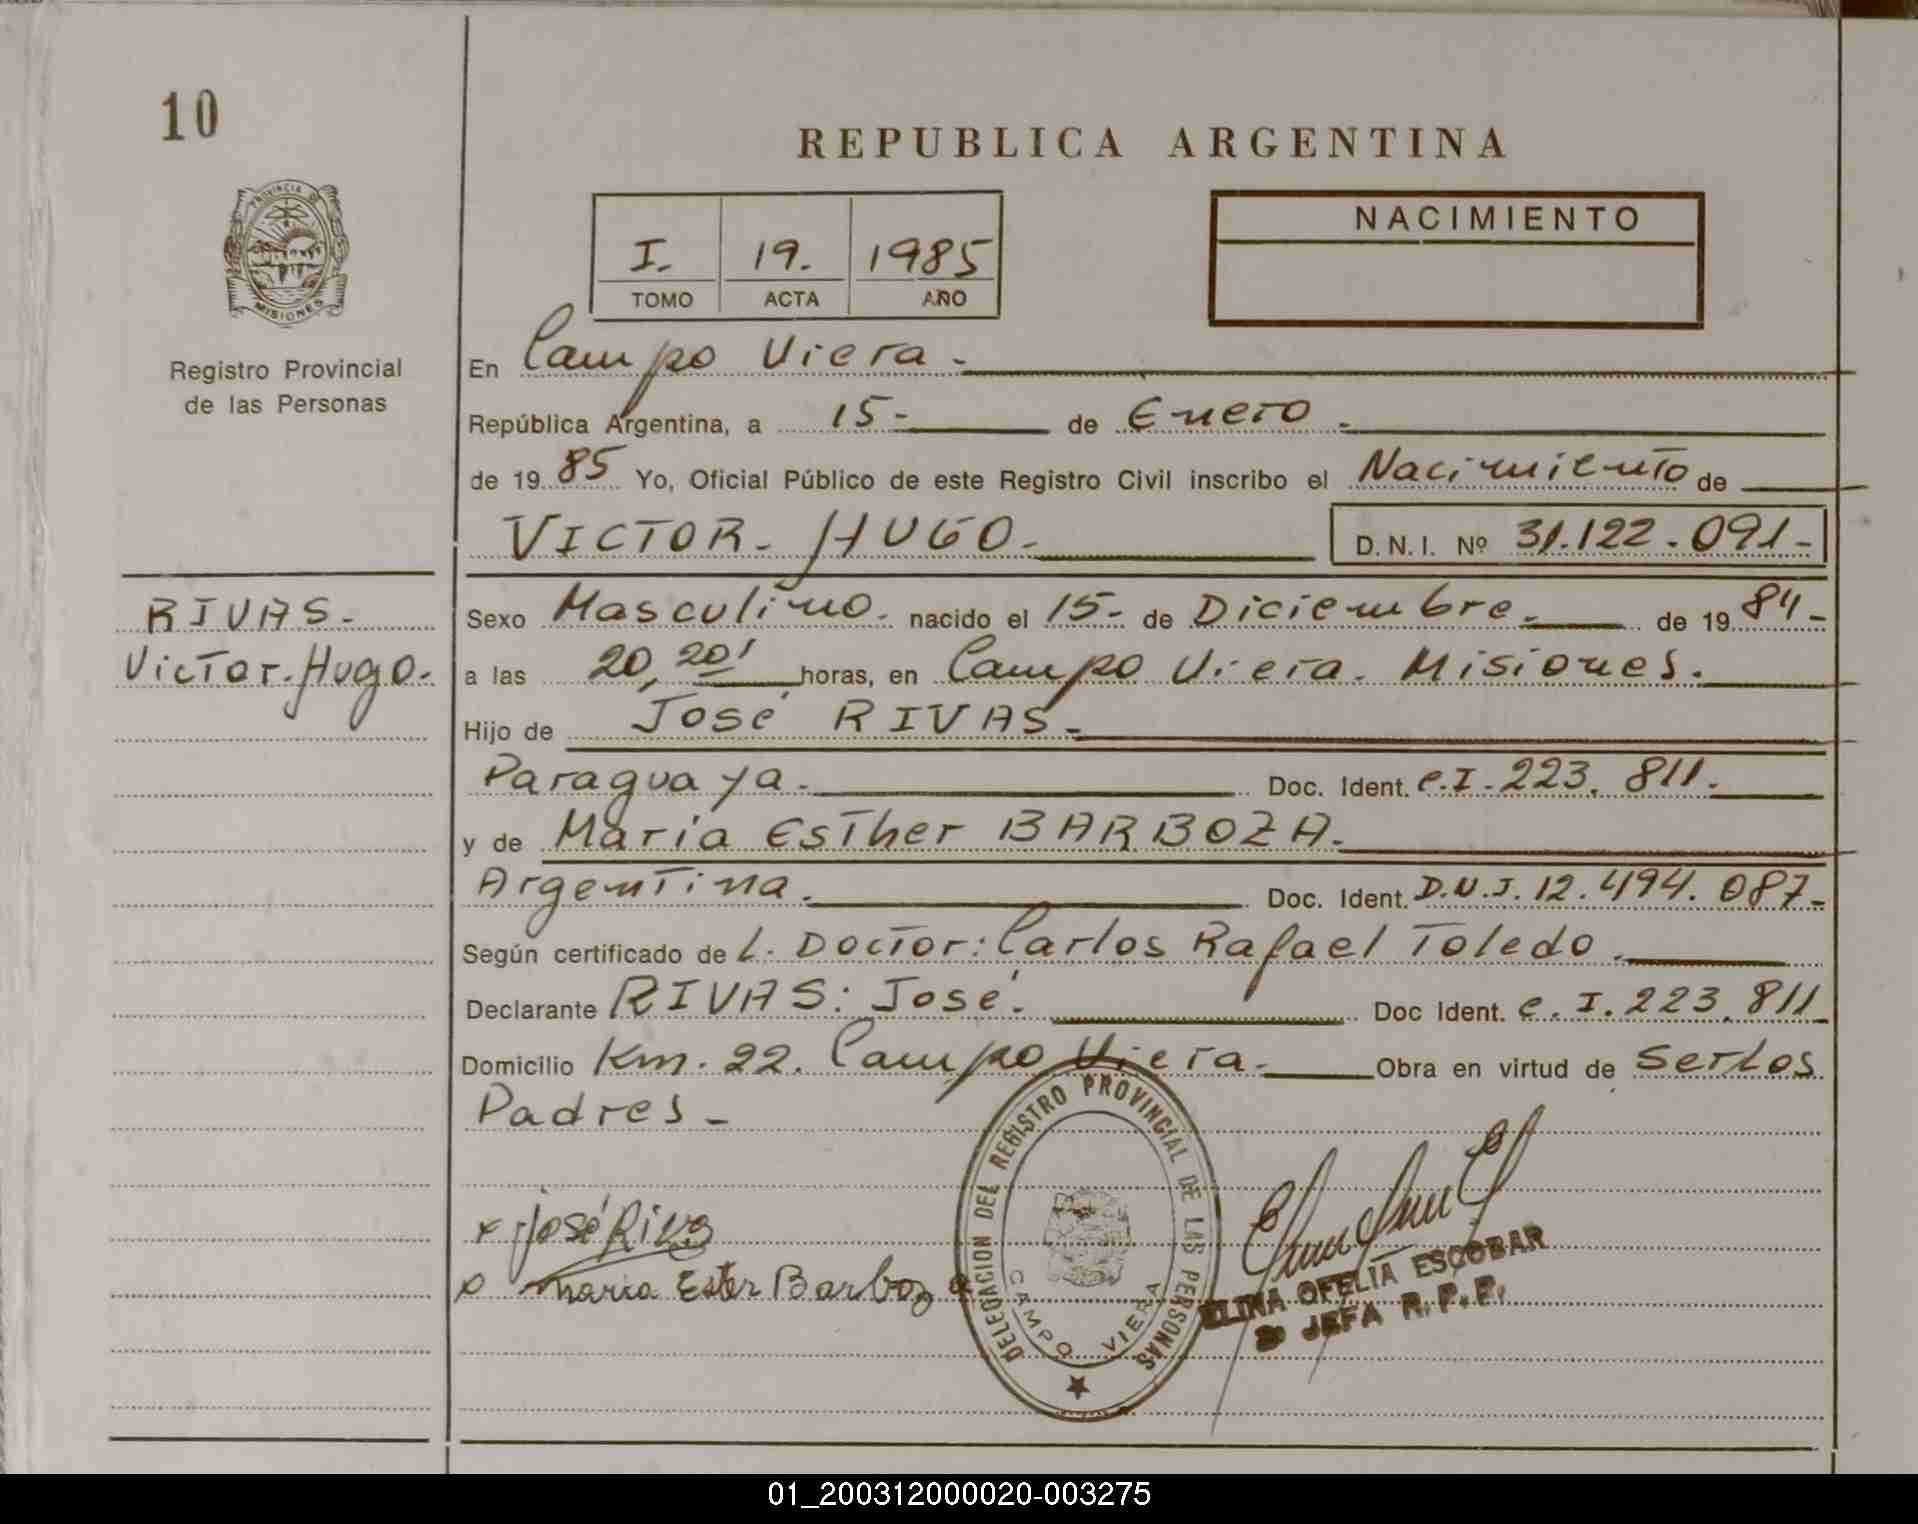 10
PROVINCIA DE
MISIONES
Registro Provincial
de las Personas
RIVAS.
Victor.Hugo.
REPUBLICA ARGENTINA
I. 19. 1985
TOMO ACTA AÑO
NACIMIENTO
En Campo Viera.
República Argentina, a 15- de Enero.
de 1985 Yo, Oficial Público de este Registro Civil inscribo el Nacimiento de
VICTOR. HUGO. D.N.I. Nº 31.122.091-
Sexo Masculino. nacido el 15- de Diciembre. de 1984-
a las 20,20' horas, en Campo Viera. Misiones.
Hijo de José RIVAS.
Paraguaya. Doc. Ident. C.I. 223.811.
y de Maria Esther BARBOZA.
Argentina. Doc. Ident. D.N.I. 12.494.087-
Según certificado de L. Doctor: Carlos Rafael Toledo.
Declarante RIVAS: José. Doc Ident. C.I. 223.811
Domicilio Km. 22. Campo Viera. Obra en virtud de Ser los
Padres-
x José Rivas
x Maria Ester Barboza
DELEGACION DEL REGISTRO PROVINCIAL DE LAS PERSONAS
CAMPO VIERA
ELINA OFELIA ESCOBAR
JEFA R.P.P.
01_200312000020-003275